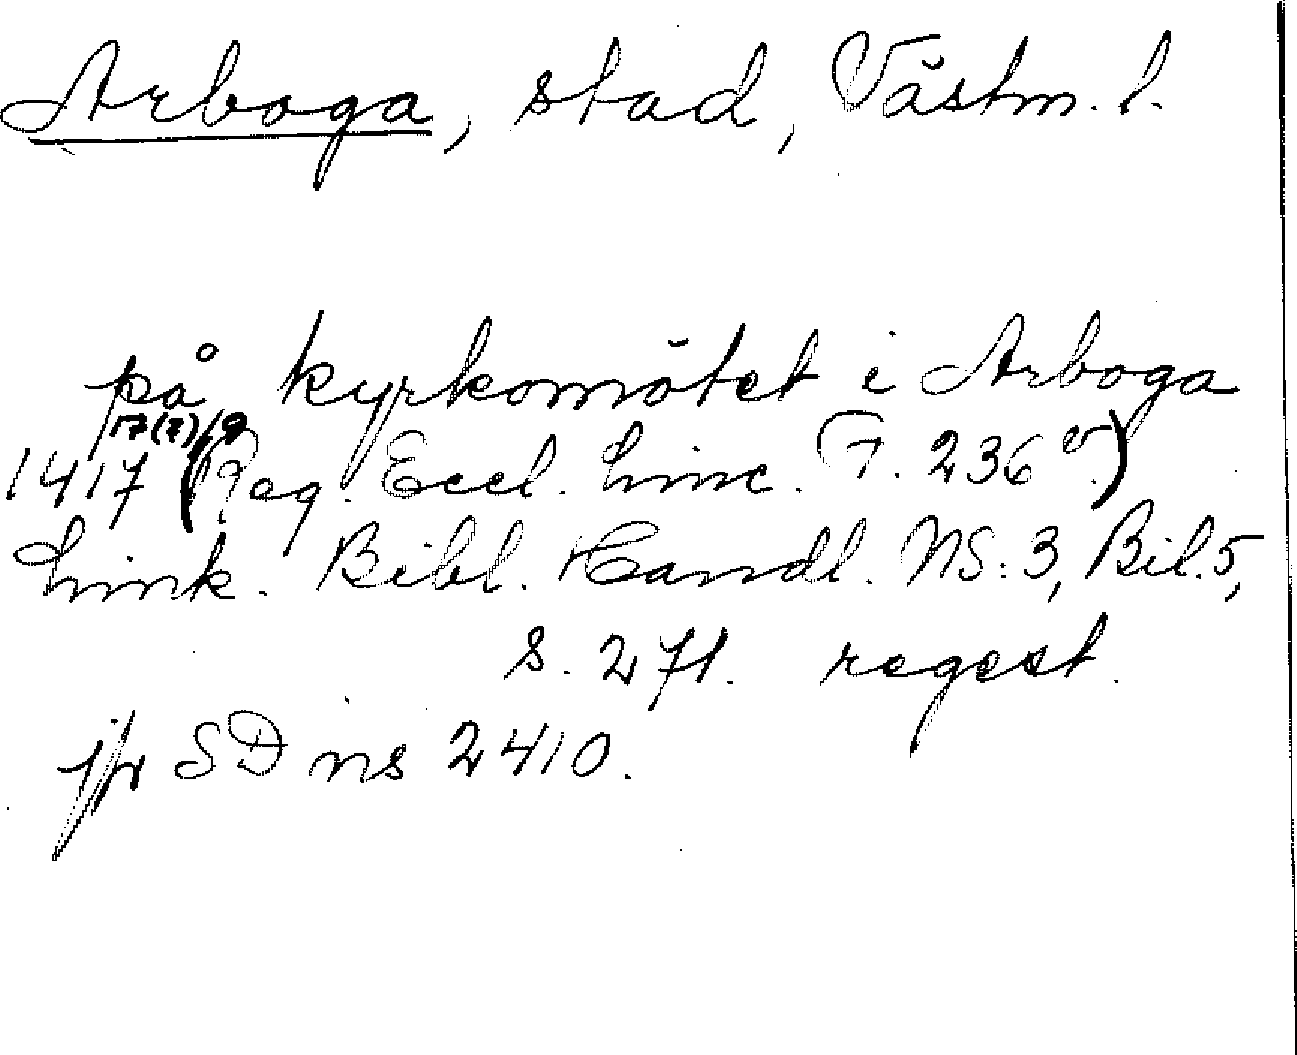 Arboga, stad, Västm. l.
på kyrkomötet i Arboga
17(?)/9
1417 (Reg. Eccl. Linc. F. 236 v.)
Link. Bibl. Handl. NS: 3, Bil. 5,
s. 271. regest.
jfr SD ns 2410.